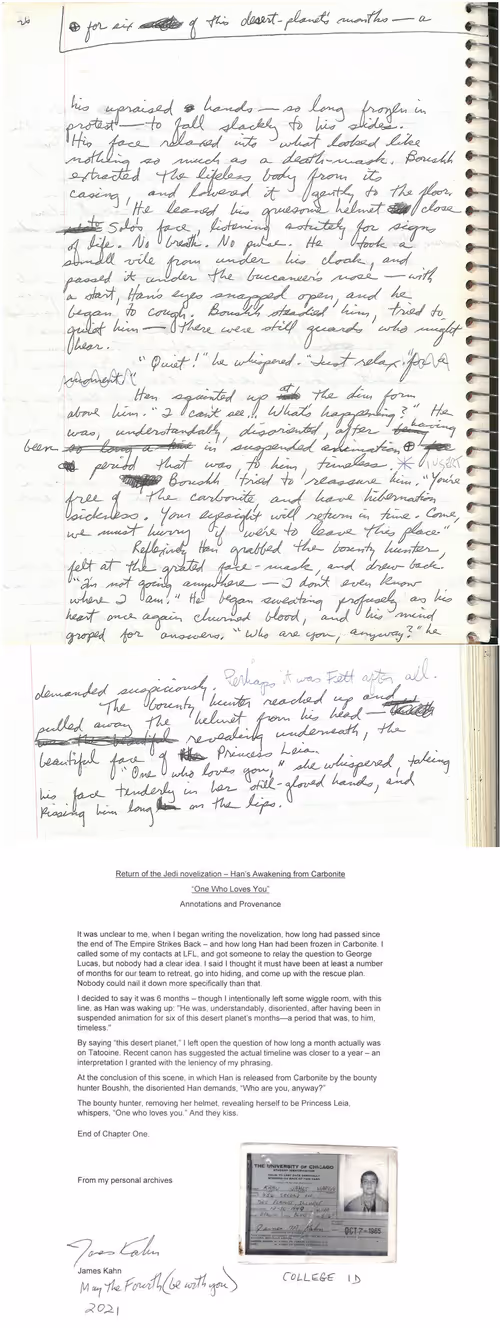 26
⊕ for six of this desert-planet's months — a
his upraised hands — so long frozen in
protest — to fall slackly to his sides.
His face relaxed into what looked like
nothing so much as a death-mask. Boushh
extracted the lifeless body from its
casing, and lowered it gently to the floor.
He leaned his gruesome helmet close
Solo's face, listening astutely for signs
of life. No breath. No pulse. He took a
small vile from under his cloak, and
passed it under the buccaneer's nose — with
a start, Han's eyes snapped open, and he
began to cough. Boushh steadied him, tried to
quiet him — there were still guards who might
hear.
"Quiet!" he whispered. "Just relax for a
moment."
Han squinted up at the dim form
above him. "I can't see... What's happening?" He
was, understandably, disoriented, after having
been in suspended animation ⊕
period that was, to him, timeless. * insert
Boushh tried to reassure him. "You're
free of the carbonite and have hibernation
sickness. Your eyesight will return in time. Come,
we must hurry if we're to leave this place."
Reflexively Han grabbed the bounty hunter,
felt at the grated face-mask, and drew back.
"I'm not going anywhere — I don't even know
where I am." He began sweating profusely as his
heart once again churned blood, and his mind
groped for answers. "Who are you, anyway?" he
demanded suspiciously. Perhaps it was Fett after all.
The bounty hunter reached up and
pulled away the helmet from his head —
revealing underneath, the
beautiful face of Princess Leia.
"One who loves you," she whispered, taking
his face tenderly in her still-gloved hands, and
kissing him long on the lips.
Return of the Jedi novelization – Han's Awakening from Carbonite
"One Who Loves You"
Annotations and Provenance
It was unclear to me, when I began writing the novelization, how long had passed since
the end of The Empire Strikes Back – and how long Han had been frozen in Carbonite. I
called some of my contacts at LFL, and got someone to relay the question to George
Lucas, but nobody had a clear idea. I said I thought it must have been at least a number
of months for our team to retreat, go into hiding, and come up with the rescue plan.
Nobody could nail it down more specifically than that.
I decided to say it was 6 months – though I intentionally left some wiggle room, with this
line, as Han was waking up: "He was, understandably, disoriented, after having been in
suspended animation for six of this desert planet's months—a period that was, to him,
timeless."
By saying "this desert planet," I left open the question of how long a month actually was
on Tatooine. Recent canon has suggested the actual timeline was closer to a year – an
interpretation I granted with the leniency of my phrasing.
At the conclusion of this scene, in which Han is released from Carbonite by the bounty
hunter Boushh, the disoriented Han demands, "Who are you, anyway?"
The bounty hunter, removing her helmet, revealing herself to be Princess Leia,
whispers, "One who loves you." And they kiss.
End of Chapter One.
From my personal archives
THE UNIVERSITY OF CHICAGO
OCT 7 - 1965
James Kahn
James Kahn
May The Fourth (be with you)
2021
COLLEGE ID